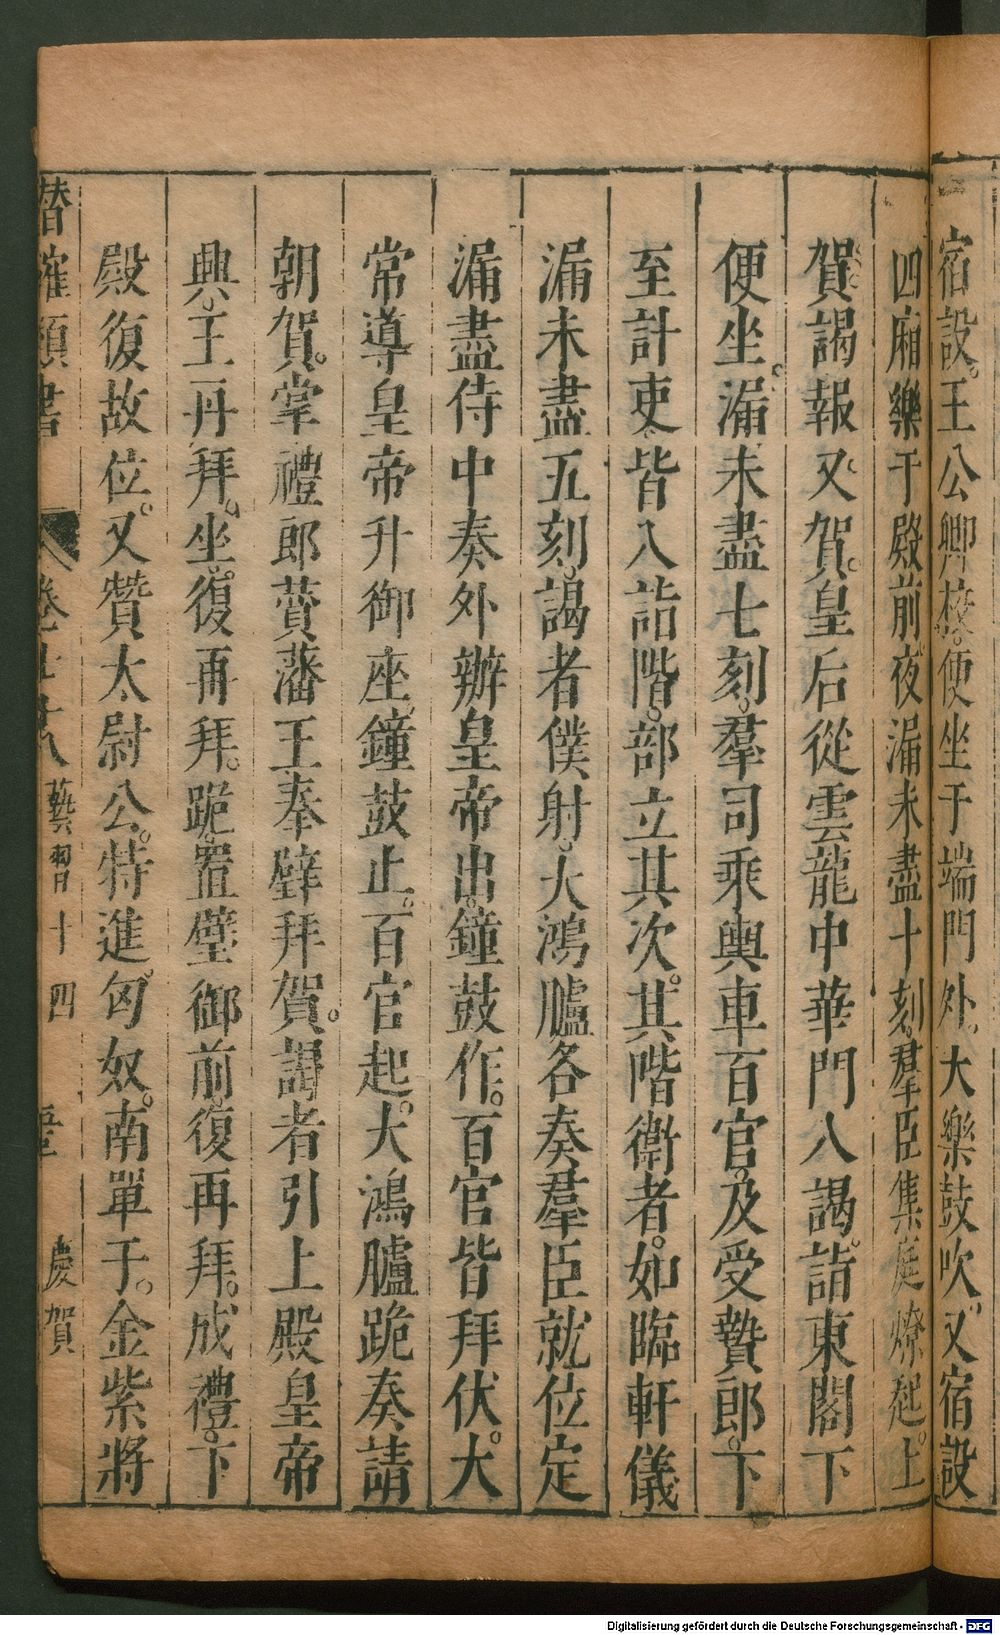 宿設。王公卿校便坐于端門外。大樂鼓吹又宿設
四廂樂于殿前夜漏未盡十刻羣臣集庭燎起。上
賀謁報又賀。皇后從雲龍中華門入謁。詣東閣下
便坐。漏未盡七刻。羣司乘輿車百官。及受贄郎。下
至計吏皆入詣階。部立其次。其階衛者。如臨軒儀
漏未盡五刻。謁者僕射。大鴻臚各奏羣臣就位定
漏盡侍中奏外辦皇帝出。鐘鼓作。百官皆拜伏。太
常導皇帝升御座鐘鼓止。百官起。大鴻臚跪奏請
朝賀。掌禮郎贊藩王奉璧拜賀。謁者引上殿皇帝
興。王再拜。坐。復再拜。跪。置璧御前。復再拜。成禮。下
殿復故位。又贊太尉公。特進匈奴。南單于。金紫將
卷 藝習十四 慶賀
Digitalisierung gefördert durch die Deutsche Forschungsgemeinschaft - DFG